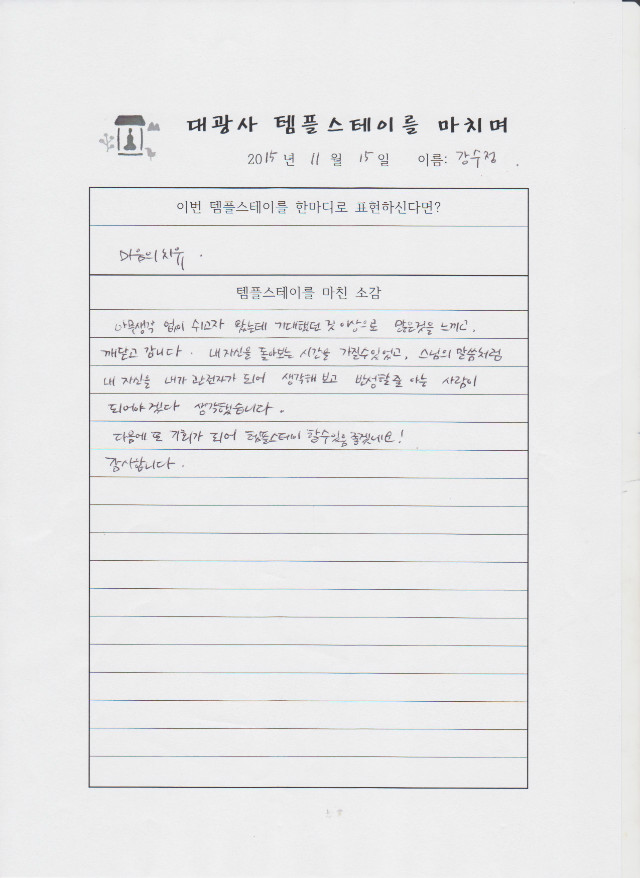 대광사 템플스테이를 마치며
2015 년 11 월 15 일 이름: 강수정 .
이번 템플스테이를 한마디로 표현하신다면?
마음의 치유 .
템플스테이를 마친 소감
아무생각 없이 쉬고자 왔는데 기대했던 것 이상으로 많은것을 느끼고,
깨닫고 갑니다. 내 자신을 돌아보는 시간을 가질수있었고, 스님의 말씀처럼
내 자신을 내가 관전자가 되어 생각해 보고 반성할 줄 아는 사람이
되어야겠다 생각했습니다.
다음에 또 기회가 되어 템플스테이 할수있음 좋겠네요!
감사합니다.